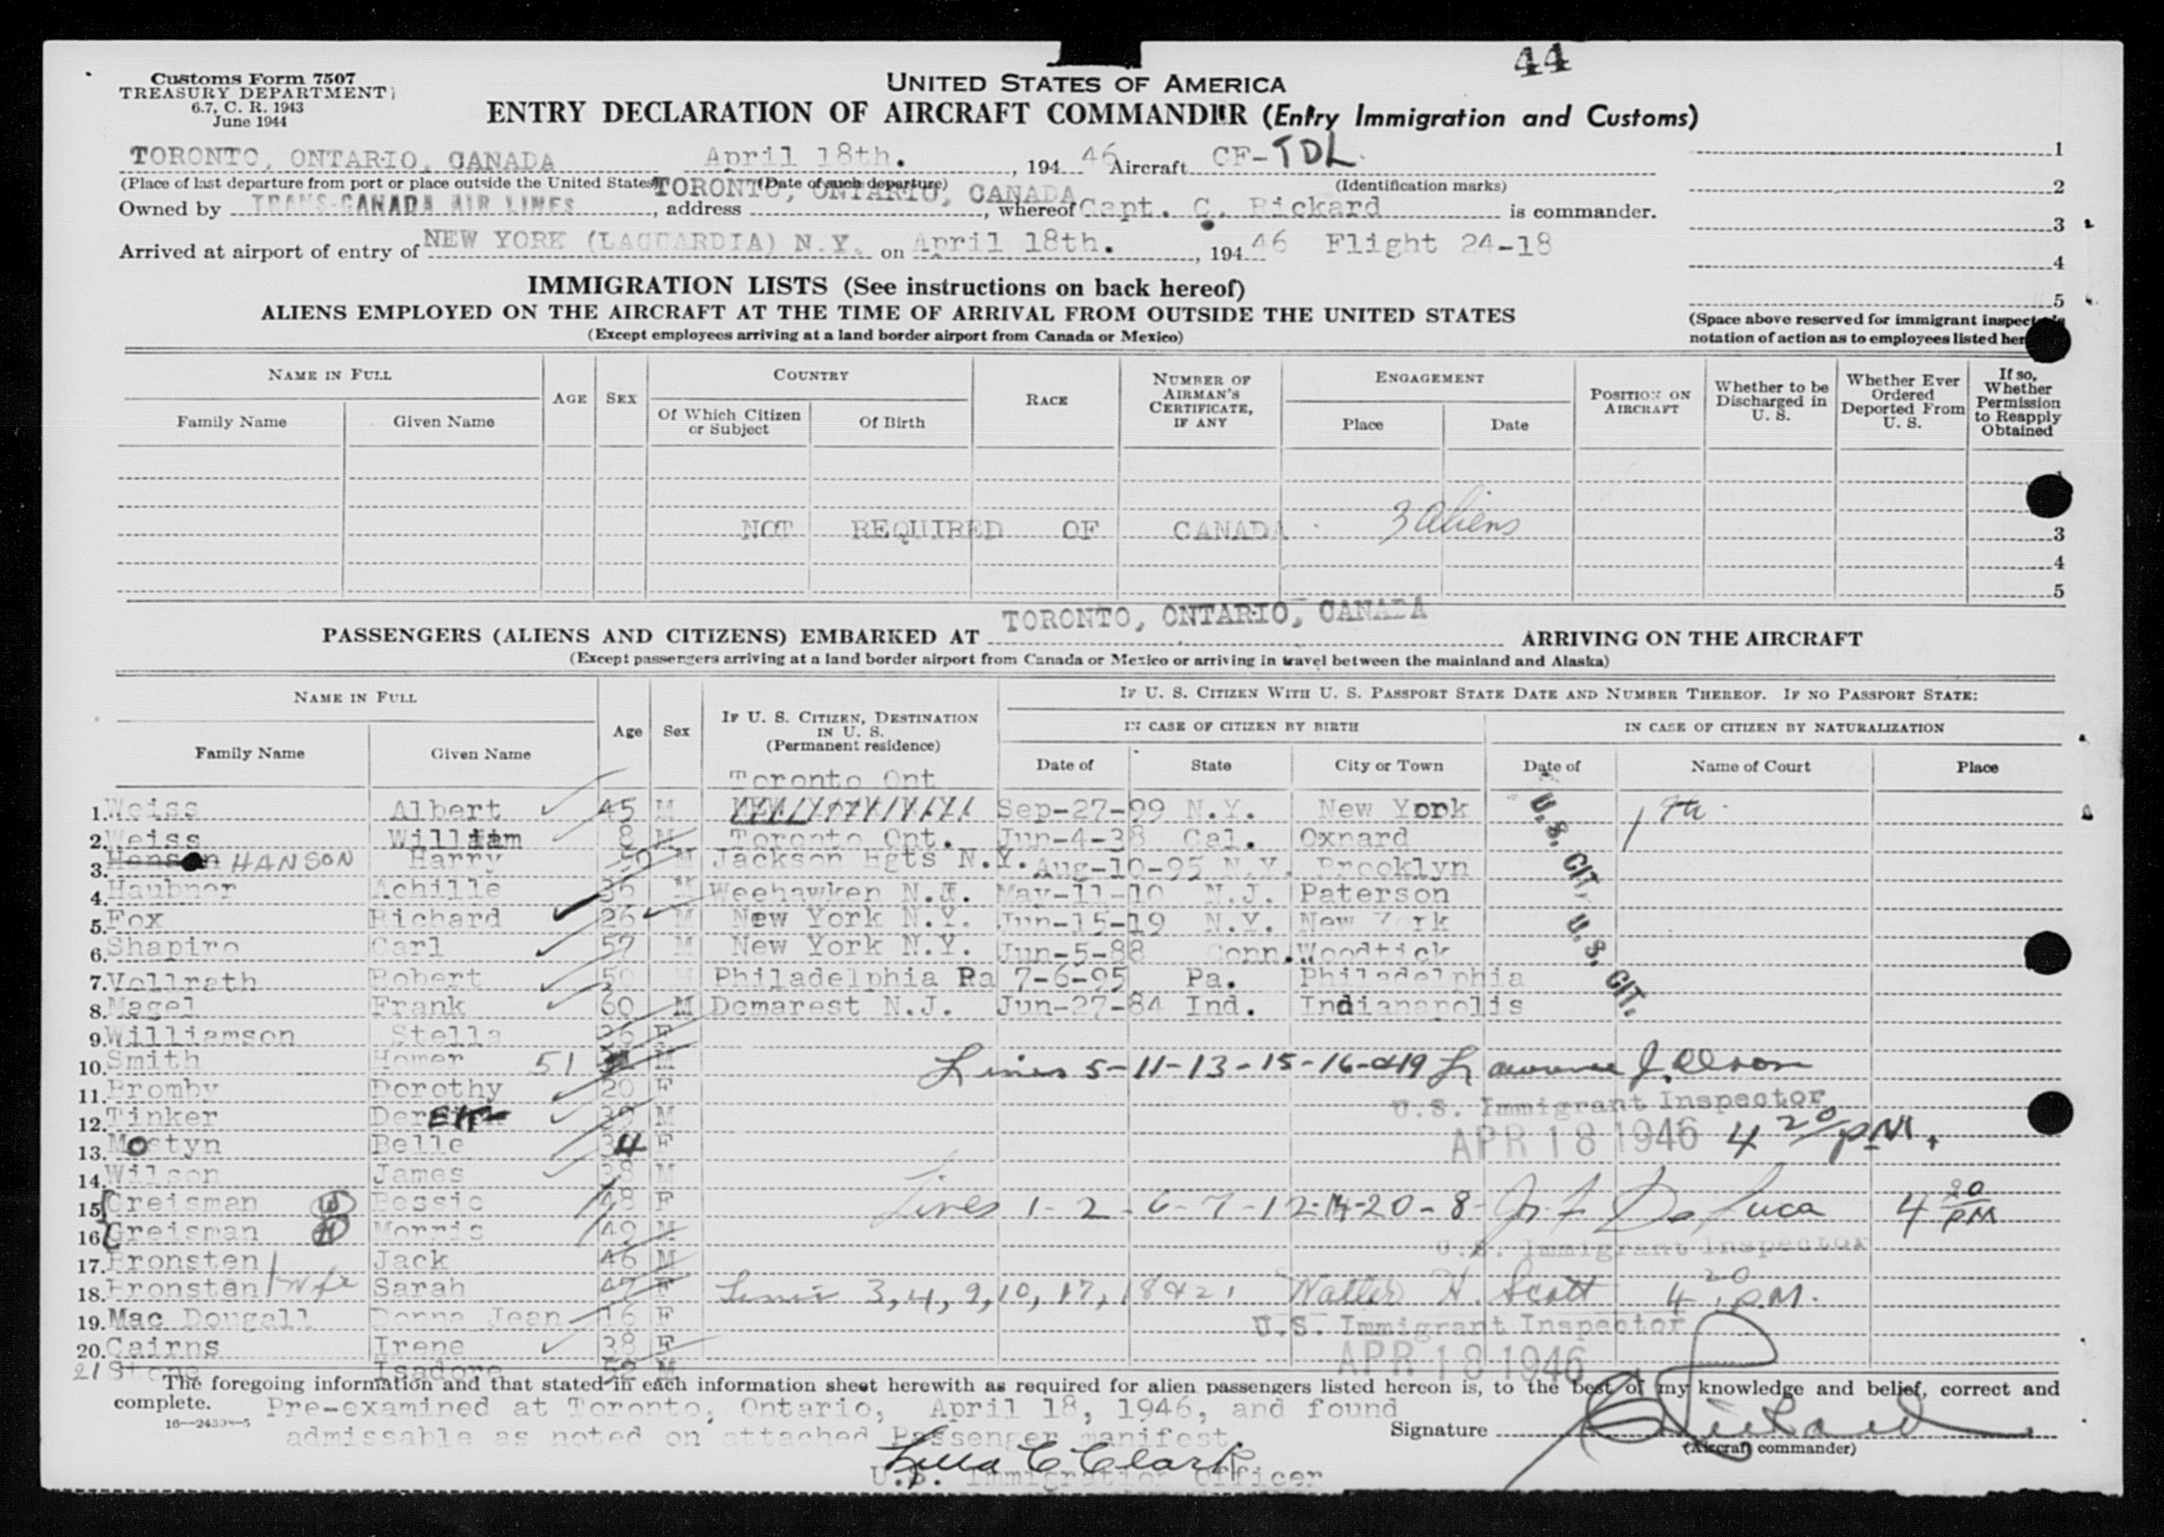 44
Customs Form 7507
TREASURY DEPARTMENT
6.7, C. R. 1943
June 1944
UNITED STATES OF AMERICA
ENTRY DECLARATION OF AIRCRAFT COMMANDER (Entry Immigration and Customs)
TORONTO, ONTARIO, CANADA April 18th. , 194 46 Aircraft CF-TDL.
(Place of last departure from port or place outside the United States) (Date of such departure) (Identification marks)
Owned by TRANS-CANADA AIR LINES, address TORONTO, ONTARIO, CANADA, whereof Capt. C. Rickard is commander.
Arrived at airport of entry of NEW YORK (LAGUARDIA) N.Y. on April 18th. , 194 46 Flight 24-18
1
2
3
4
5
(Space above reserved for immigrant inspector's
notation of action as to employees listed her
IMMIGRATION LISTS (See instructions on back hereof)
ALIENS EMPLOYED ON THE AIRCRAFT AT THE TIME OF ARRIVAL FROM OUTSIDE THE UNITED STATES
(Except employees arriving at a land border airport from Canada or Mexico)
NAME IN FULL
Family Name Given Name
AGE SEX
COUNTRY
Of Which Citizen or Subject Of Birth
RACE
NUMBER OF AIRMAN'S CERTIFICATE, IF ANY
ENGAGEMENT
Place Date
POSITION ON AIRCRAFT
Whether to be Discharged in U. S.
Whether Ever Ordered Deported From U. S.
If so, Whether Permission to Reapply Obtained
NOT REQUIRED OF CANADA 3 aliens 3
4
5
PASSENGERS (ALIENS AND CITIZENS) EMBARKED AT TORONTO, ONTARIO, CANADA ARRIVING ON THE AIRCRAFT
(Except passengers arriving at a land border airport from Canada or Mexico or arriving in travel between the mainland and Alaska)
NAME IN FULL
Family Name Given Name
Age Sex
IF U. S. CITIZEN, DESTINATION IN U. S. (Permanent residence)
IF U. S. CITIZEN WITH U. S. PASSPORT STATE DATE AND NUMBER THEREOF. IF NO PASSPORT STATE:
IN CASE OF CITIZEN BY BIRTH IN CASE OF CITIZEN BY NATURALIZATION
Date of State City or Town Date of Name of Court Place
Toronto Ont
1. Weiss Albert 45 M Sep-27-99 N.Y. New York
2. Weiss William 8 M Toronto Ont. Jun-4-38 Cal. Oxnard
3. Hanson HANSON Harry 50 M Jackson Hgts N.Y. Aug-10-95 N.Y. Brooklyn
4. Haubner Achille 35 M Weehawken N.J. May-11-10 N.J. Paterson
5. Fox Richard 26 M New York N.Y. Jun-15-19 N.Y. New York
6. Shapiro Carl 57 M New York N.Y. Jun-5-88 Conn. Woodtick
7. Vollrath Robert 50 M Philadelphia Pa 7-6-95 Pa. Philadelphia
8. Magel Frank 60 M Demarest N.J. Jun-27-84 Ind. Indianapolis
U. S. CIT. U. S. CIT.
9. Williamson Stella 26 F
10. Smith Homer 51 M
Lines 5-11-13-15-16-&19 Lawrence J. Olson
11. Bromby Dorothy 20 F
U.S. Immigrant Inspector
12. Tinker Derek 39 M
APR 18 1946 4 20/PM.
13. Mostyn Belle 34 F
14. Wilson James 38 M
15. Greisman W Bessie 48 F
Lines 1-2-6-7-12-14-20-8- De Luca 4 20 PM
16. Greisman H Morris 49 M
U.S. Immigrant Inspector
17. Bronsten Jack 46 M
18. Bronsten wfe Sarah 47 F
Lines 3,4,9,10,17,18&21 Walter H. Scott 4 20 P.M.
19. Mac Dougall Donna Jean 16 F
U.S. Immigrant Inspector
20. Cairns Irene 38 F
APR 18 1946
21 Stone Isadore 52 M
The foregoing information and that stated in each information sheet herewith as required for alien passengers listed hereon is, to the best of my knowledge and belief, correct and
complete. Pre-examined at Toronto, Ontario, April 18, 1946, and found
16—2439—5
admissable as noted on attached Passenger manifest
Signature C Rickard
(Aircraft commander)
Lilla C Clark
U.S. Immigration Officer